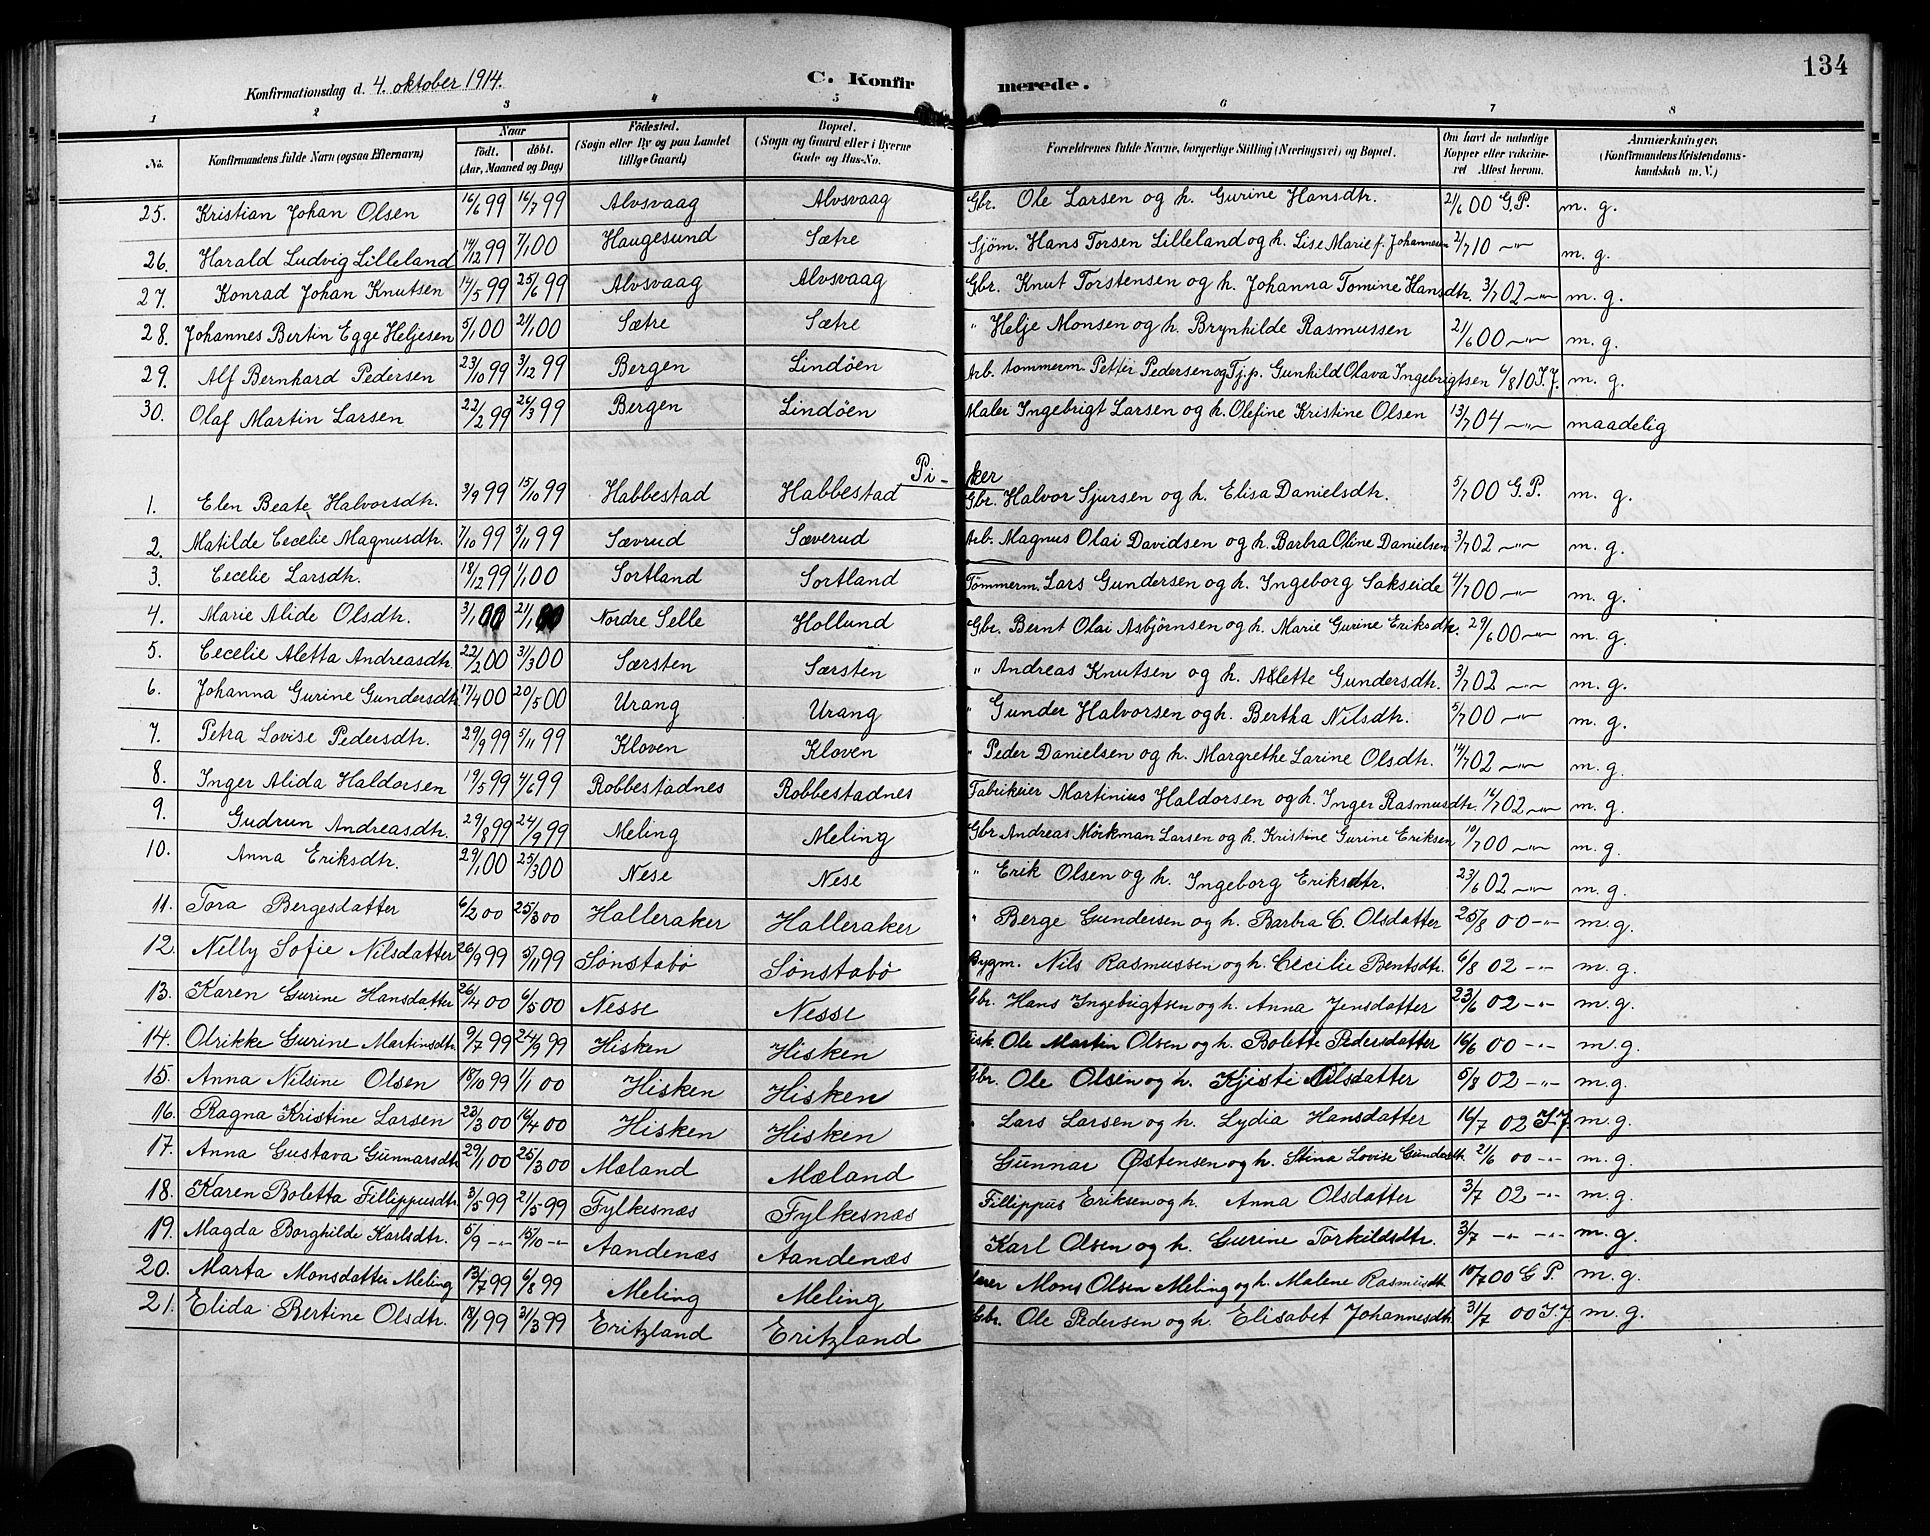 134
Konfirmationsdag d. 4. oktober 1914. C. Konfirmerede.
1 2 3 4 5 6 7 8
No. Konfirmandens fulde Navn (ogsaa Efternavn) Naar født. døbt. (Aar, Maaned og Dag) Födested. (Sogn eller By og paa Landet tillige Gaard) Bopæl. (Sogn og Gaard eller i Byerne Gade og Hus-No. Forældrenes fulde Navne, borgerlige Stilling (Næringsvei) og Bopæl. Om havt de naturlige Kopper eller vakcineret Attest herom. Anmærkninger. (Konfirmandens Kristendomskundskab m. V.)
25. Kristian Johan Olsen 16/6 99 16/7 99 Alvsvaag Alvsvaag Gbr. Ole Larsen og h. Gurine Hansdtr. 21/6 00 G.P. m. g.
26. Harald Ludvig Lilleland 14/12 99 7/1 00 Haugesund Sætre Sjöm. Hans Torsen Lilleland og h. Lise Marie f. Johannesen 2/7 10 -"- m. g.
27. Konrad Johan Knutsen 14/5 99 25/6 99 Alvsvaag Alvsvaag Gbr. Knut Torstensen og h. Johanna Tomine Hansdtr. 3/7 02 -"- m. g.
28. Johannes Bertin Egge Heljesen 5/1 00 21/1 00 Sætre Sætre " Helje Monsen og h. Brynhilde Rasmussen 21/6 00 -"- m. g.
29. Alf Bernhard Pedersen 23/10 99 3/12 99 Bergen Lindöen Arb. tømmerm. Petter Pedersen og Tj.p. Gunhild Olava Ingebrigtsen 6/8 10 J.J. m. g.
30. Olaf Martin Larsen 22/2 99 26/3 99 Bergen Lindöen Maler Ingebrigt Larsen og h. Olefine Kristine Olsen 13/7 04 -"- maadelig
Pi-ker
1. Elen Beate Halvorsdtr. 3/9 99 15/10 99 Habbestad Habbestad Gbr. Halvor Sjursen og h. Elisa Danielsdtr. 5/7 00 G.P. m. g.
2. Matilde Cecelie Magnusdtr. 7/10 99 5/11 99 Sævrud Sæverud Arb. Magnus Olai Davidsen og h. Barbra Oline Danielsen 3/7 02 -"- m. g.
3. Cecelie Larsdtr. 18/12 99 1/1 00 Sortland Sortland Tømmerm. Lars Gundersen og h. Ingeborg Sakseide 4/7 00 -"- m. g.
4. Marie Alide Olsdtr. 3/1 00 21/1 00 Nordre Selle Hollund Gbr. Bernt Olai Asbjørnsen og h. Marie Gurine Eriksdtr. 29/6 00 -"- m. g.
5. Cecelie Aletta Andreasdtr. 22/2 00 31/3 00 Særsten Særsten " Andreas Knutsen og h. Alette Gundersdtr. 3/7 02 -"- m. g.
6. Johanna Gurine Gundersdtr. 17/4 00 20/5 00 Urang Urang " Gunder Halvorsen og h. Bertha Nilsdtr. 5/7 00 -"- m. g.
7. Petra Lovise Pedersdtr. 29/9 99 5/11 99 Kloven Kloven " Peder Danielsen og h. Margrethe Larine Olsdtr. 14/7 02 -"- m. g.
8. Inger Alida Haldorsen 19/5 99 4/6 99 Robbestadnes Robbestadnes Fabrikeier Martinius Haldorsen og h. Inger Rasmusdtr. 16/7 02 -"- m. g.
9. Gudrun Andreasdtr. 29/8 99 24/9 99 Meling Meling Gbr Andreas Mörkman Larsen og h. Kristine Gurine Eriksen 10/7 00 -"- m. g.
10. Anna Eriksdtr. 29/1 00 25/3 00 Nese Nese " Erik Olsen og h. Ingeborg Eriksdtr. 23/6 02 -"- m. g.
11. Tora Bergesdatter 6/2 00 25/3 00 Halleraker Halleraker " Berge Gundersen og h. Barbra C. Olsdatter 25/8 00 -"- m. g.
12. Nelly Sofie Nilsdatter 26/9 99 5/11 99 Sønstabø Sønstabø Bygm. Nils Rasmussen og h. Cecilie Bentsdtr. 6/8 02 -"- m. g.
13. Karen Gurine Hansdatter 26/4 00 6/5 00 Nesse Nesse Gbr. Hans Ingebrigtsen og h. Anna Jensdatter 23/6 02 -"- m. g.
14. Olrikke Gurine Martinsdtr. 9/7 99 24/9 99 Hisken Hisken Fisk. Ole Martin Olsen og h. Bolette Pedersdatter 16/6 00 -"- m. g.
15. Anna Nilsine Olsen 18/10 99 1/1 00 Hisken Hisken Gbr. Ole Olsen og h. Kjersti Nilsdatter 5/8 02 -"- m. g.
16. Ragna Kristine Larsen 23/3 00 16/4 00 Hisken Hisken " Lars Larsen og h. Lydia Hansdatter 16/7 02 J.J m. g.
17. Anna Gustava Gunnarsdtr. 29/1 00 25/3 00 Mæland Mæland Gunnar Østensen og h. Stina Lovise Gundersdtr. 21/6 00 -"- m. g.
18. Karen Boletta Fillippusdtr. 3/5 99 21/5 99 Fylkesnæs Fylkesnæs Fillippus Eriksen og h. Anna Olsdatter 3/7 02 -"- m. g.
19. Magda Borghilde Karlsdtr. 5/9 -"- 15/10 -"- Aandenæs Aandenæs Karl Olsen og h. Gurine Torkildsdtr. 3/7 -"- -"- m. g.
20. Marta Monsdatter Meling 13/7 99 6/8 99 Meling Meling Lærer Mons Olsen Meling og h. Malene Rasmusdtr. 10/7 00 G P. m. g.
21. Elida Bertine Olsdtr. 18/1 99 31/3 99 Eritzland Eritzland Gbr. Ole Pedersen og h. Elisabet Johannesdtr. 31/7 00 J.J m. g.